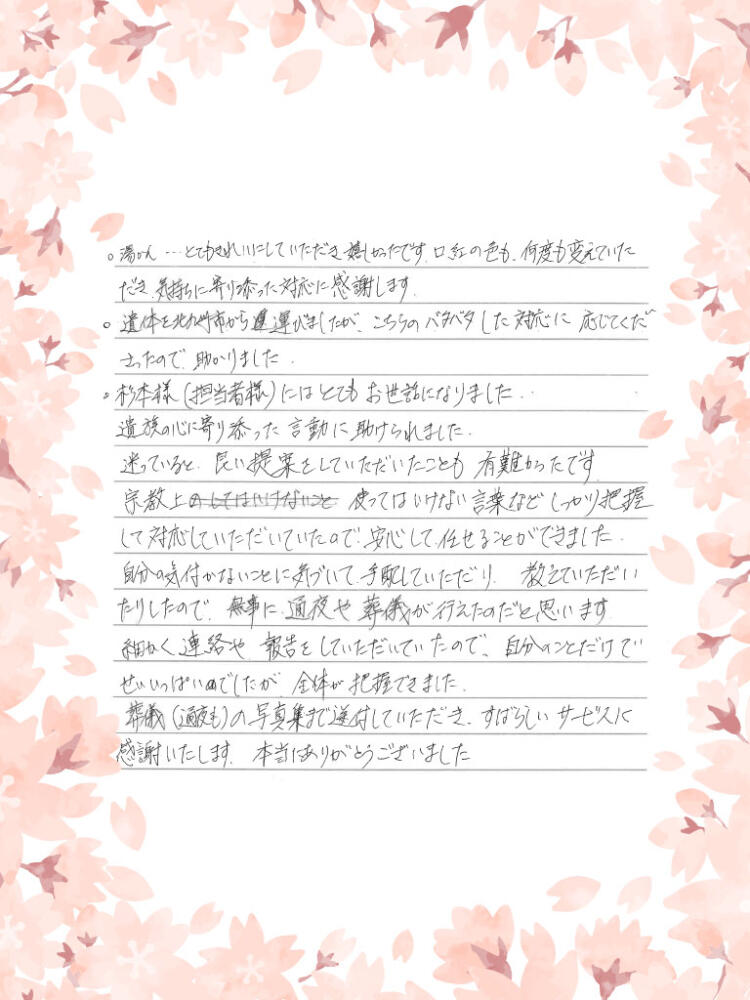 。湯かん…とてもきれいにしていただき嬉しかったです。口紅の色も、何度も変えていた
だき、気持ちに寄り添った対応に感謝します。
。遺体を北九州市から運びましたが、こちらのバタバタした対応に応じてくだ
さったので、助かりました。
。杉本様(担当者様)にはとてもお世話になりました..
遺族の心に寄り添った言動に助けられました.
迷っていると、良い提案をしていただいたことも有難かったです
宗教上のしてはいけないこと 使ってはいけない言葉など しっかり把握
して対応していただいていたので、安心して任せることができました.
自分の気付かないことに気づいて、手配していただだり、教えていただい
たりしたので、無事に、通夜や葬儀が行えたのだと思います
細かく連絡や報告をしていただいていたので、自分のことだけで
せいいっぱいのでしたが 全体が把握できました.
葬儀(通夜も)の写真集まで送付していただき、すばらしいサービスに
感謝いたします. 本当にありがとうございました